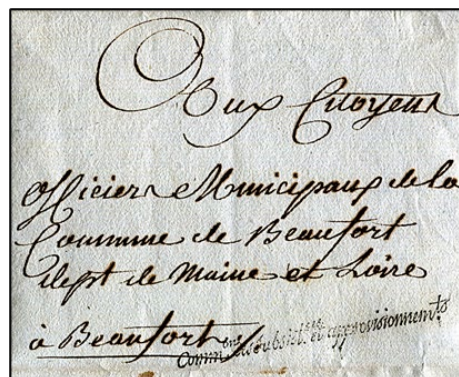 Aux Citoyens
Officiers Municipaux de la
Commune de Beaufort
dept de Maine et Loire
à Beaufort
Comm.on des Subsist.ces et approvisionnem.ts